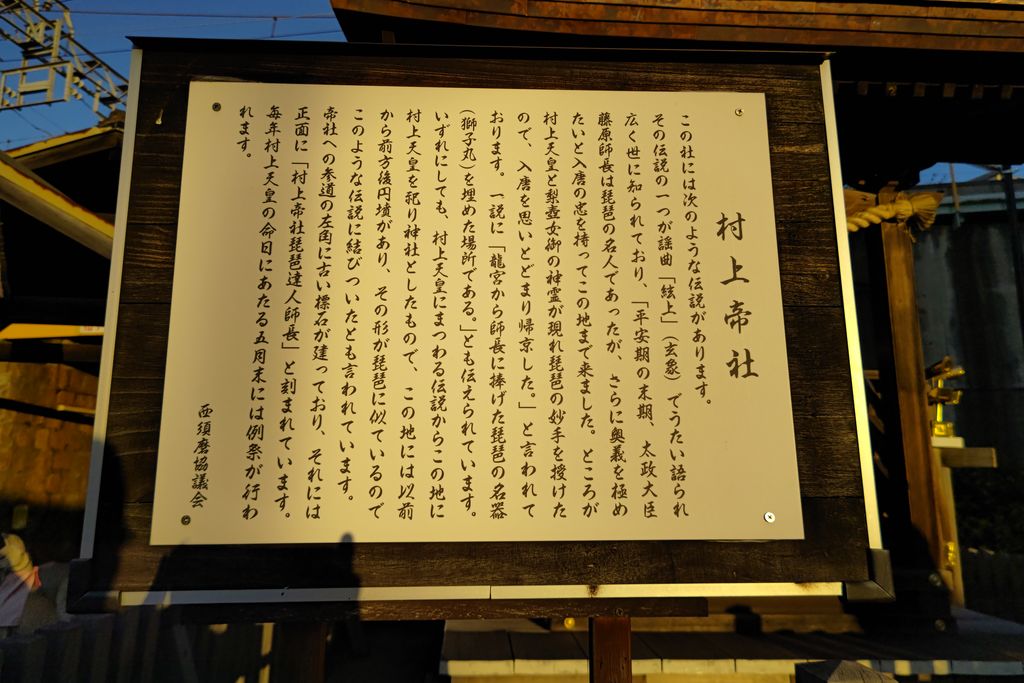 村上帝社
この社には次のような伝説があります。
その伝説の一つが謡曲「絃上」(玄象)でうたい語られ
広く世に知られており、「平安期の末期、太政大臣
藤原師長は琵琶の名人であったが、さらに奥義を極め
たいと入唐の志を持ってこの地まで来ました。ところが
村上天皇と梨壺女御の神霊が現れ琵琶の妙手を授けた
ので、入唐を思いとどまり帰京した。」と言われて
おります。一説に「龍宮から師長に捧げた琵琶の名器
(獅子丸)を埋めた場所である。」とも伝えられています。
いずれにしても、村上天皇にまつわる伝説からこの地に
村上天皇を祀り神社としたもので、この地には以前
から前方後円墳があり、その形が琵琶に似ているので
このような伝説に結びついたとも言われています。
帝社への参道の左角に古い標石が建っており、それには
正面に「村上帝社琵琶達人師長」と刻まれています。
毎年村上天皇の命日にあたる五月末には例祭が行わ
れます。
西須磨協議会